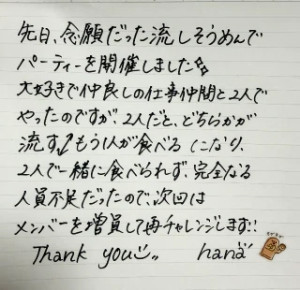 先日、念願だった流しそうめんで
パーティーを開催しました
大好きで仲良しの仕事仲間と2人で
やったのですが、2人だと、どちらかが
流す♪もう1人が食べる になり、
2人で一緒に食べられず、完全なる
人員不足だったので、次回は
メンバーを増員して再チャレンジします!!
Thank you hana